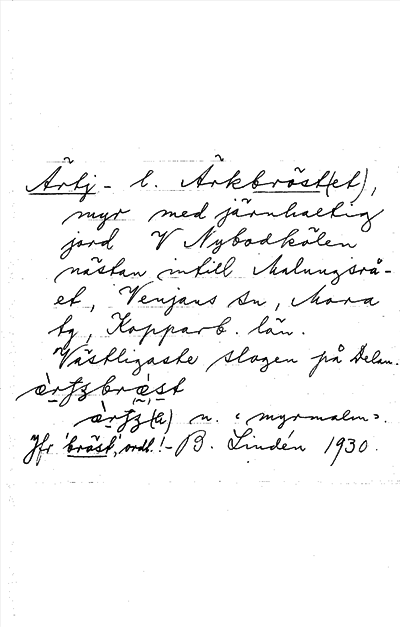 Ärtj- l. Ärkbröst(et),
myr med järnhaltig
jord V Nybodkölen
nästan intill Malungsrå-
et, Venjans sn, Mora
tg, Kopparb. län.
Västligaste slogen på Delan.
n. "myrmalm".
Jfr 'bröst', ordl.! - B. Lindén 1930.